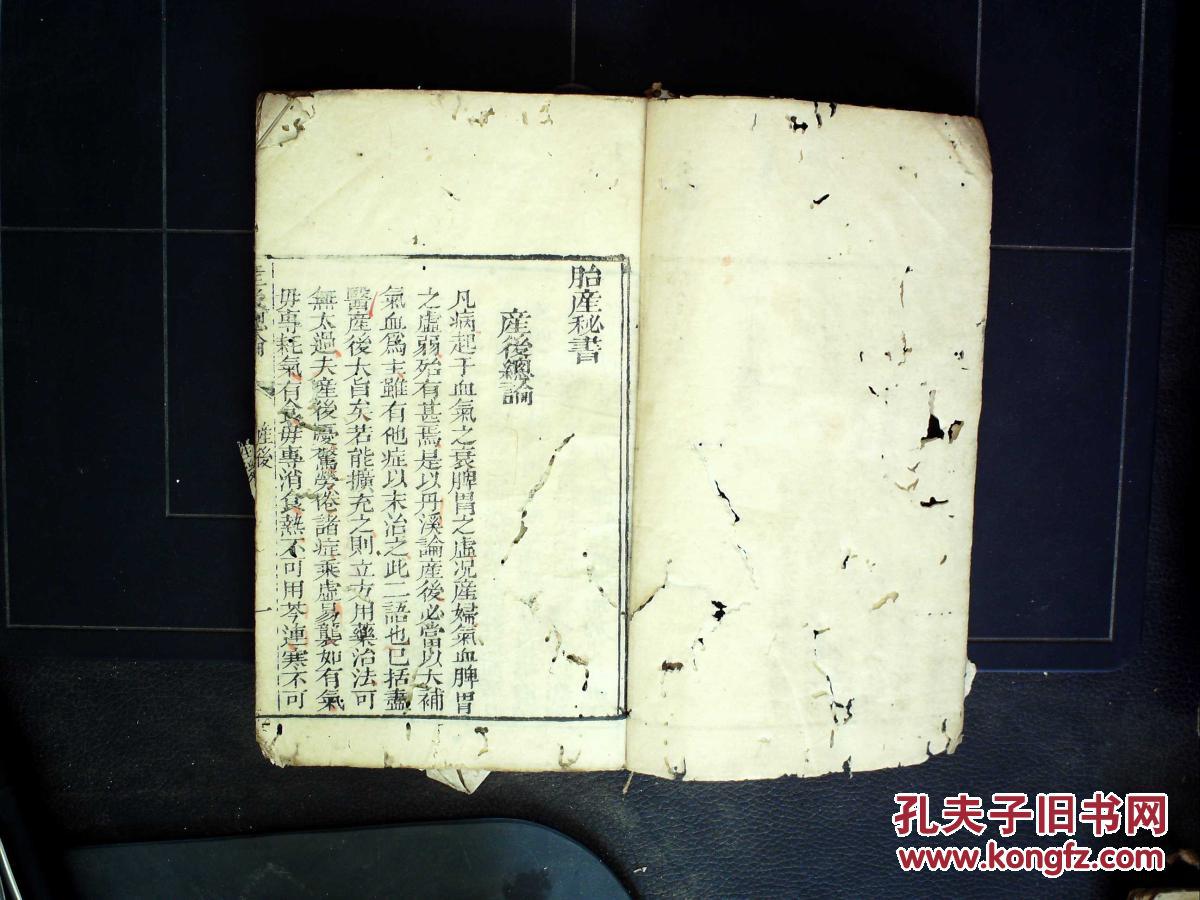 胎產秘書
產後總論
凡病起于血氣之衰脾胃之虛况產婦氣血脾胃
之虛弱殆有甚焉是以丹溪論產後必當以大補
氣血爲主雖有他症以末治之此二語也已括盡
醫產後大旨矣若能擴充之則立方用藥治法可
無太過夫產後憂驚勞倦諸症乘虛易襲如有氣
毋專耗氣有食毋專消食熱不可用芩連寒不可
產後總論
產後
一
孔夫子旧书网
www.kongfz.com